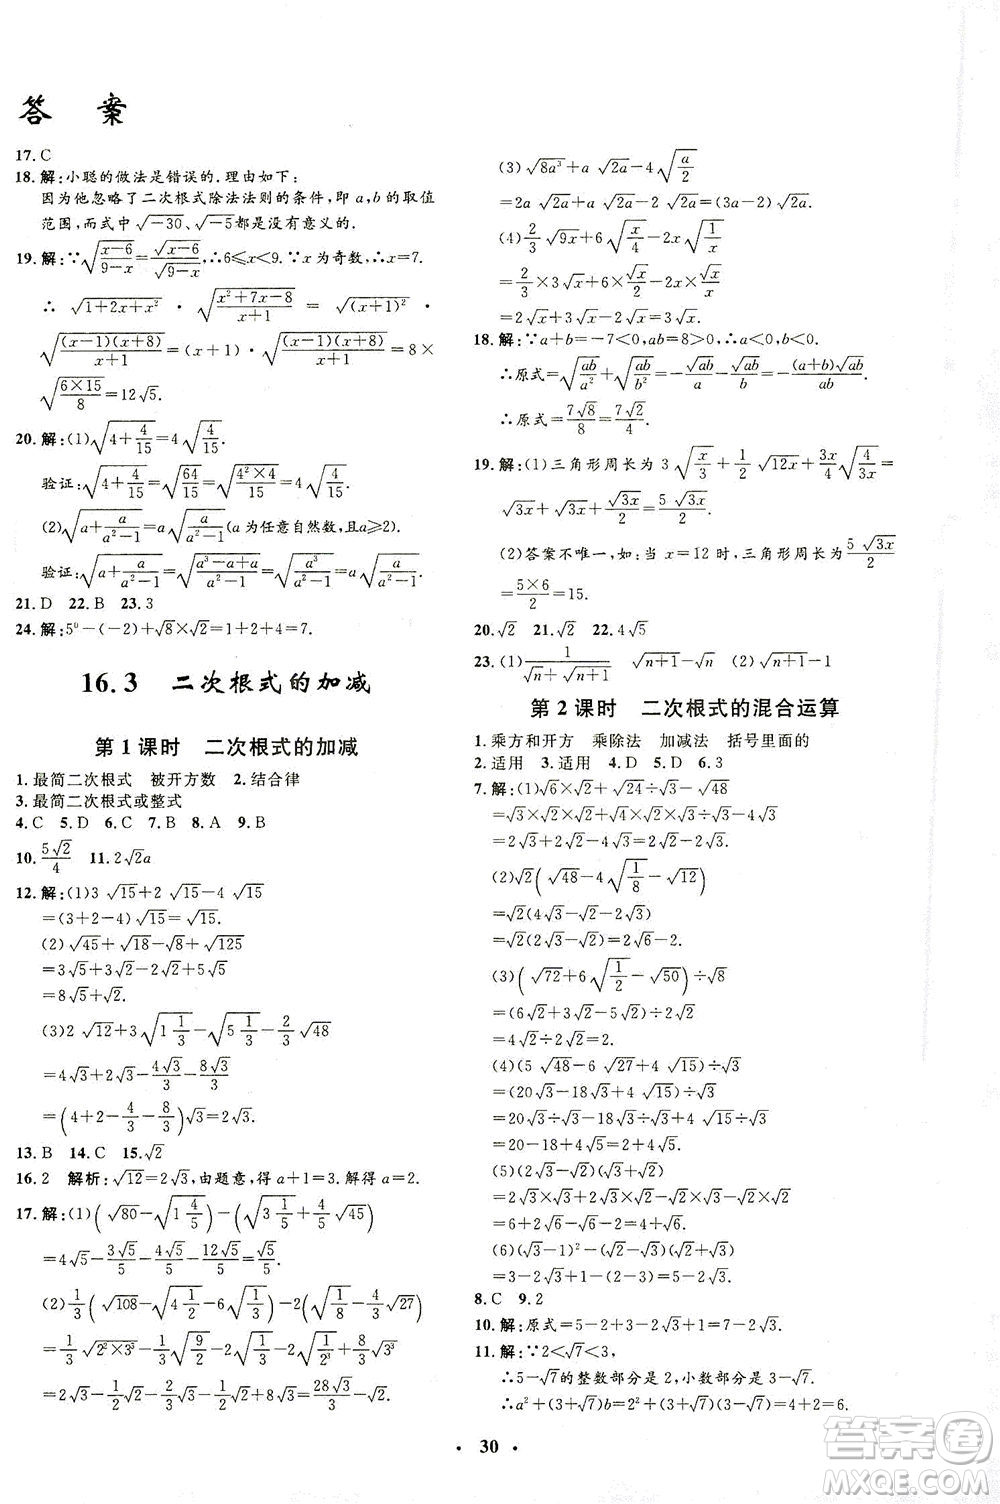 答 案
17. C
18. 解:小聪的做法是错误的. 理由如下:
因为他忽略了二次根式除法法则的条件,即 a,b 的取值
范围,而式中 √-30、√-5都是没有意义的.
19. 解:∵√((x-6)/(9-x))=√(x-6)/√(9-x),∴6≤x<9. ∵x 为奇数,∴x=7.
∴ √(1+2x+x²) · √((x²+7x-8)/(x+1)) = √((x+1)²) ·
√((x-1)(x+8)/(x+1))=(x+1)·√((x-1)(x+8)/(x+1))=8×
√(6×15/8)=12√5.
20. 解:(1)√(4+4/15)=4√(4/15).
验证:√(4+4/15)=√(64/15)=√(4²×4/15)=4√(4/15).
(2)√(a+a/(a²-1))=a√(a/(a²-1))(a 为任意自然数,且a≥2).
验证:√(a+a/(a²-1))=√((a³-a+a)/(a²-1))=a√(a/(a²-1)).
21. D 22. B 23. 3
24. 解:5⁰-(-2)+√8×√2=1+2+4=7.
16.3 二次根式的加减
第 1 课时 二次根式的加减
1. 最简二次根式 被开方数 2. 结合律
3. 最简二次根式或整式
4. C 5. D 6. C 7. B 8. A 9. B
10. 5√2/4 11. 2√2a
12. 解:(1)3√15+2√15-4√15
=(3+2-4)√15=√15.
(2)√45+√18-√8+√125
=3√5+3√2-2√2+5√5
=8√5+√2.
(3)2√12+3√(1 1/3)-√(5 1/3)-2/3√48
=4√3+2√3-4√3/3-8√3/3
=(4+2-4/3-8/3)√3=2√3.
13. B 14. C 15. √2
16. 2 解析:√12=2√3,由题意,得 a+1=3. 解得 a=2.
17. 解:(1)(√80-√(1 4/5))-(√(3 1/5)+4/5√45)
=4√5-3√5/5-4√5/5-12√5/5=√5/5.
(2)1/3(√108-√(4 1/2))-2(√(1/8)-4/3√27)
=1/3√(2²×3³)-1/3√(9/2)-2√(1/8)+2×4/3√3³
=2√3-1/2√2-1/2√2+8√3=28√3/3-√2.
(3)√(8a³)+a√(2a)-4√(a/2)
=2a√(2a)+a√(2a)-2√(2a)=(3a-2)√(2a).
(4)2/3√(9x)+6√(x/4)-2x√(1/x)
=2/3×3√x+6×√x/2-2x×√x/x
=2√x+3√x-2√x=3√x.
18. 解:∵a+b=-7<0,ab=8>0,∴a<0,b<0.
∴原式=√(ab/a²)+√(ab/b²)=-√ab/a-√ab/b=-(a+b)√ab/ab.
∴原式=7√8/8=7√2/4.
19. 解:(1)三角形周长为 3√(x/3)+1/2√(12x)+3x/4√(4/(3x))=
√(3x)+√(3x)+√(3x)/2=5√(3x)/2.
(2)答案不唯一,如:当 x=12 时,三角形周长为5√(3x)/2
=5×6/2=15.
20. √2 21. √2 22. 4√5
23. (1)1/(√n+√(n+1)) √(n+1)-√n (2)√(n+1)-1
第 2 课时 二次根式的混合运算
1. 乘方和开方 乘除法 加减法 括号里面的
2. 适用 3. 适用 4. D 5. D 6. 3
7. 解:(1)√6×√2+√24÷√3-√48
=√3×√2×√2+√3×√2×√2×√2÷√3-4√3
=2√3+2√2-4√3=2√2-2√3.
(2)√2(√48-4√(1/8)-√12)
=√2(4√3-√2-2√3)
=√2(2√3-√2)=2√6-2.
(3)(√72+6√(1/2)-√50)÷√2
=(6√2+3√2-5√2)÷√2
=4√2÷√2=4.
(4)(5√48-6√27+4√15)÷√3
=(20√3-18√3+4√15)÷√3
=20√3÷√3-18√3÷√3+4√15÷√3
=20-18+4√5=2+4√5.
(5)(2√3-√2)(√12+√8)
=2√3×2√3+2√3×2√2-√2×2√3-√2×2√2
=6+2√6+2.
(6)(√3-1)²-(√3+√2)(√3-√2)
=3-2√3+1-3+2=3-2√3.
8. C 9. 2
10. 解:原式=5-2+3-2√3+1=7-2√3.
11. 解:∵2<√7<3,
∴5-√7的整数部分是 2,小数部分是 3-√7.
∴a²+(3+√7)b=2²+(3+√7)(3-√7)=4+2=6.
• 30 •
答案圈
MXQE.COM